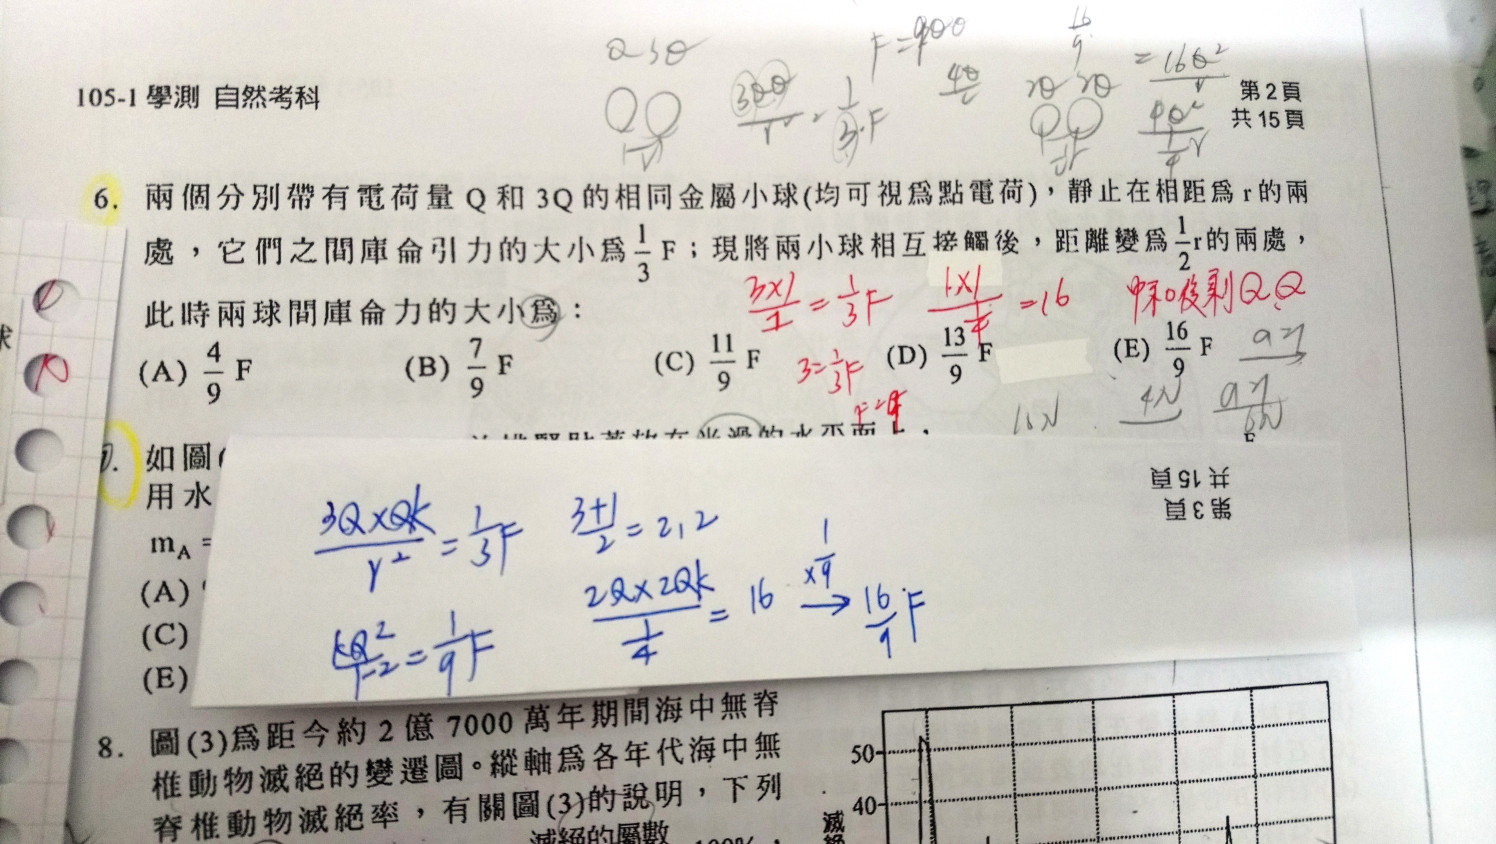 Q 3Q
F=9QQ
16
9
3QQ
1
3 F
4Q
2Q 2Q
= 16Q²
105-1 學測 自然考科
第 2 頁
共 15 頁
6. 兩個分別帶有電荷量 Q 和 3Q 的相同金屬小球(均可視為點電荷)，靜止在相距為 r 的兩
處，它們之間庫侖引力的大小為 1/3 F；現將兩小球相互接觸後，距離變為 1/2 r 的兩處，
此時兩球間庫侖力的大小為：
3×1/1 = 1/3 F
1×1/¼ = 16
中和後剩 Q Q
(A) 4/9 F (B) 7/9 F (C) 11/9 F (D) 13/9 F (E) 16/9 F
3=1/3 F
F=9
4N
第 3 頁
共 15 頁
7. 如圖(
用水
mA =
(A)
(C)
(E)
3Q×Qk/r² = 1/3 F
3+1/2 = 2,2
kQ²/r² = 1/9 F
2Q×2Qk/¼ = 16 ×1/9 → 16/9 F
8. 圖(3)為距今約 2 億 7000 萬年期間海中無脊
椎動物滅絕的變遷圖。縱軸為各年代海中無
脊椎動物滅絕率，有關圖(3)的說明，下列
滅絕的屬數
100%，
50
40
滅
絕